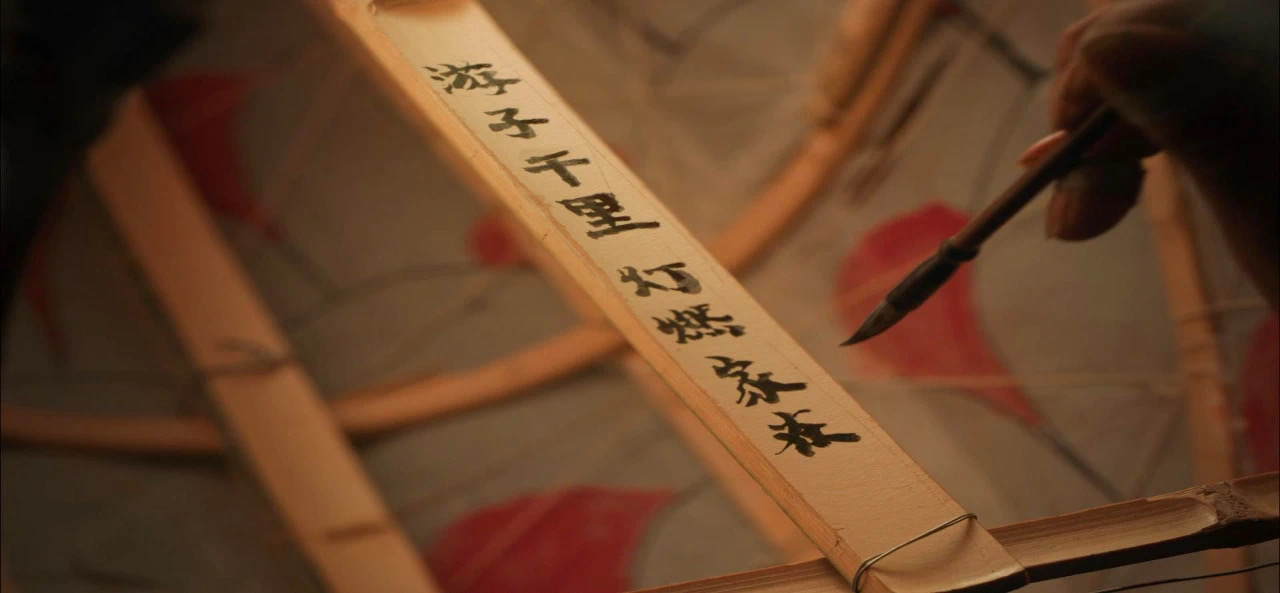 游子千里灯燃家